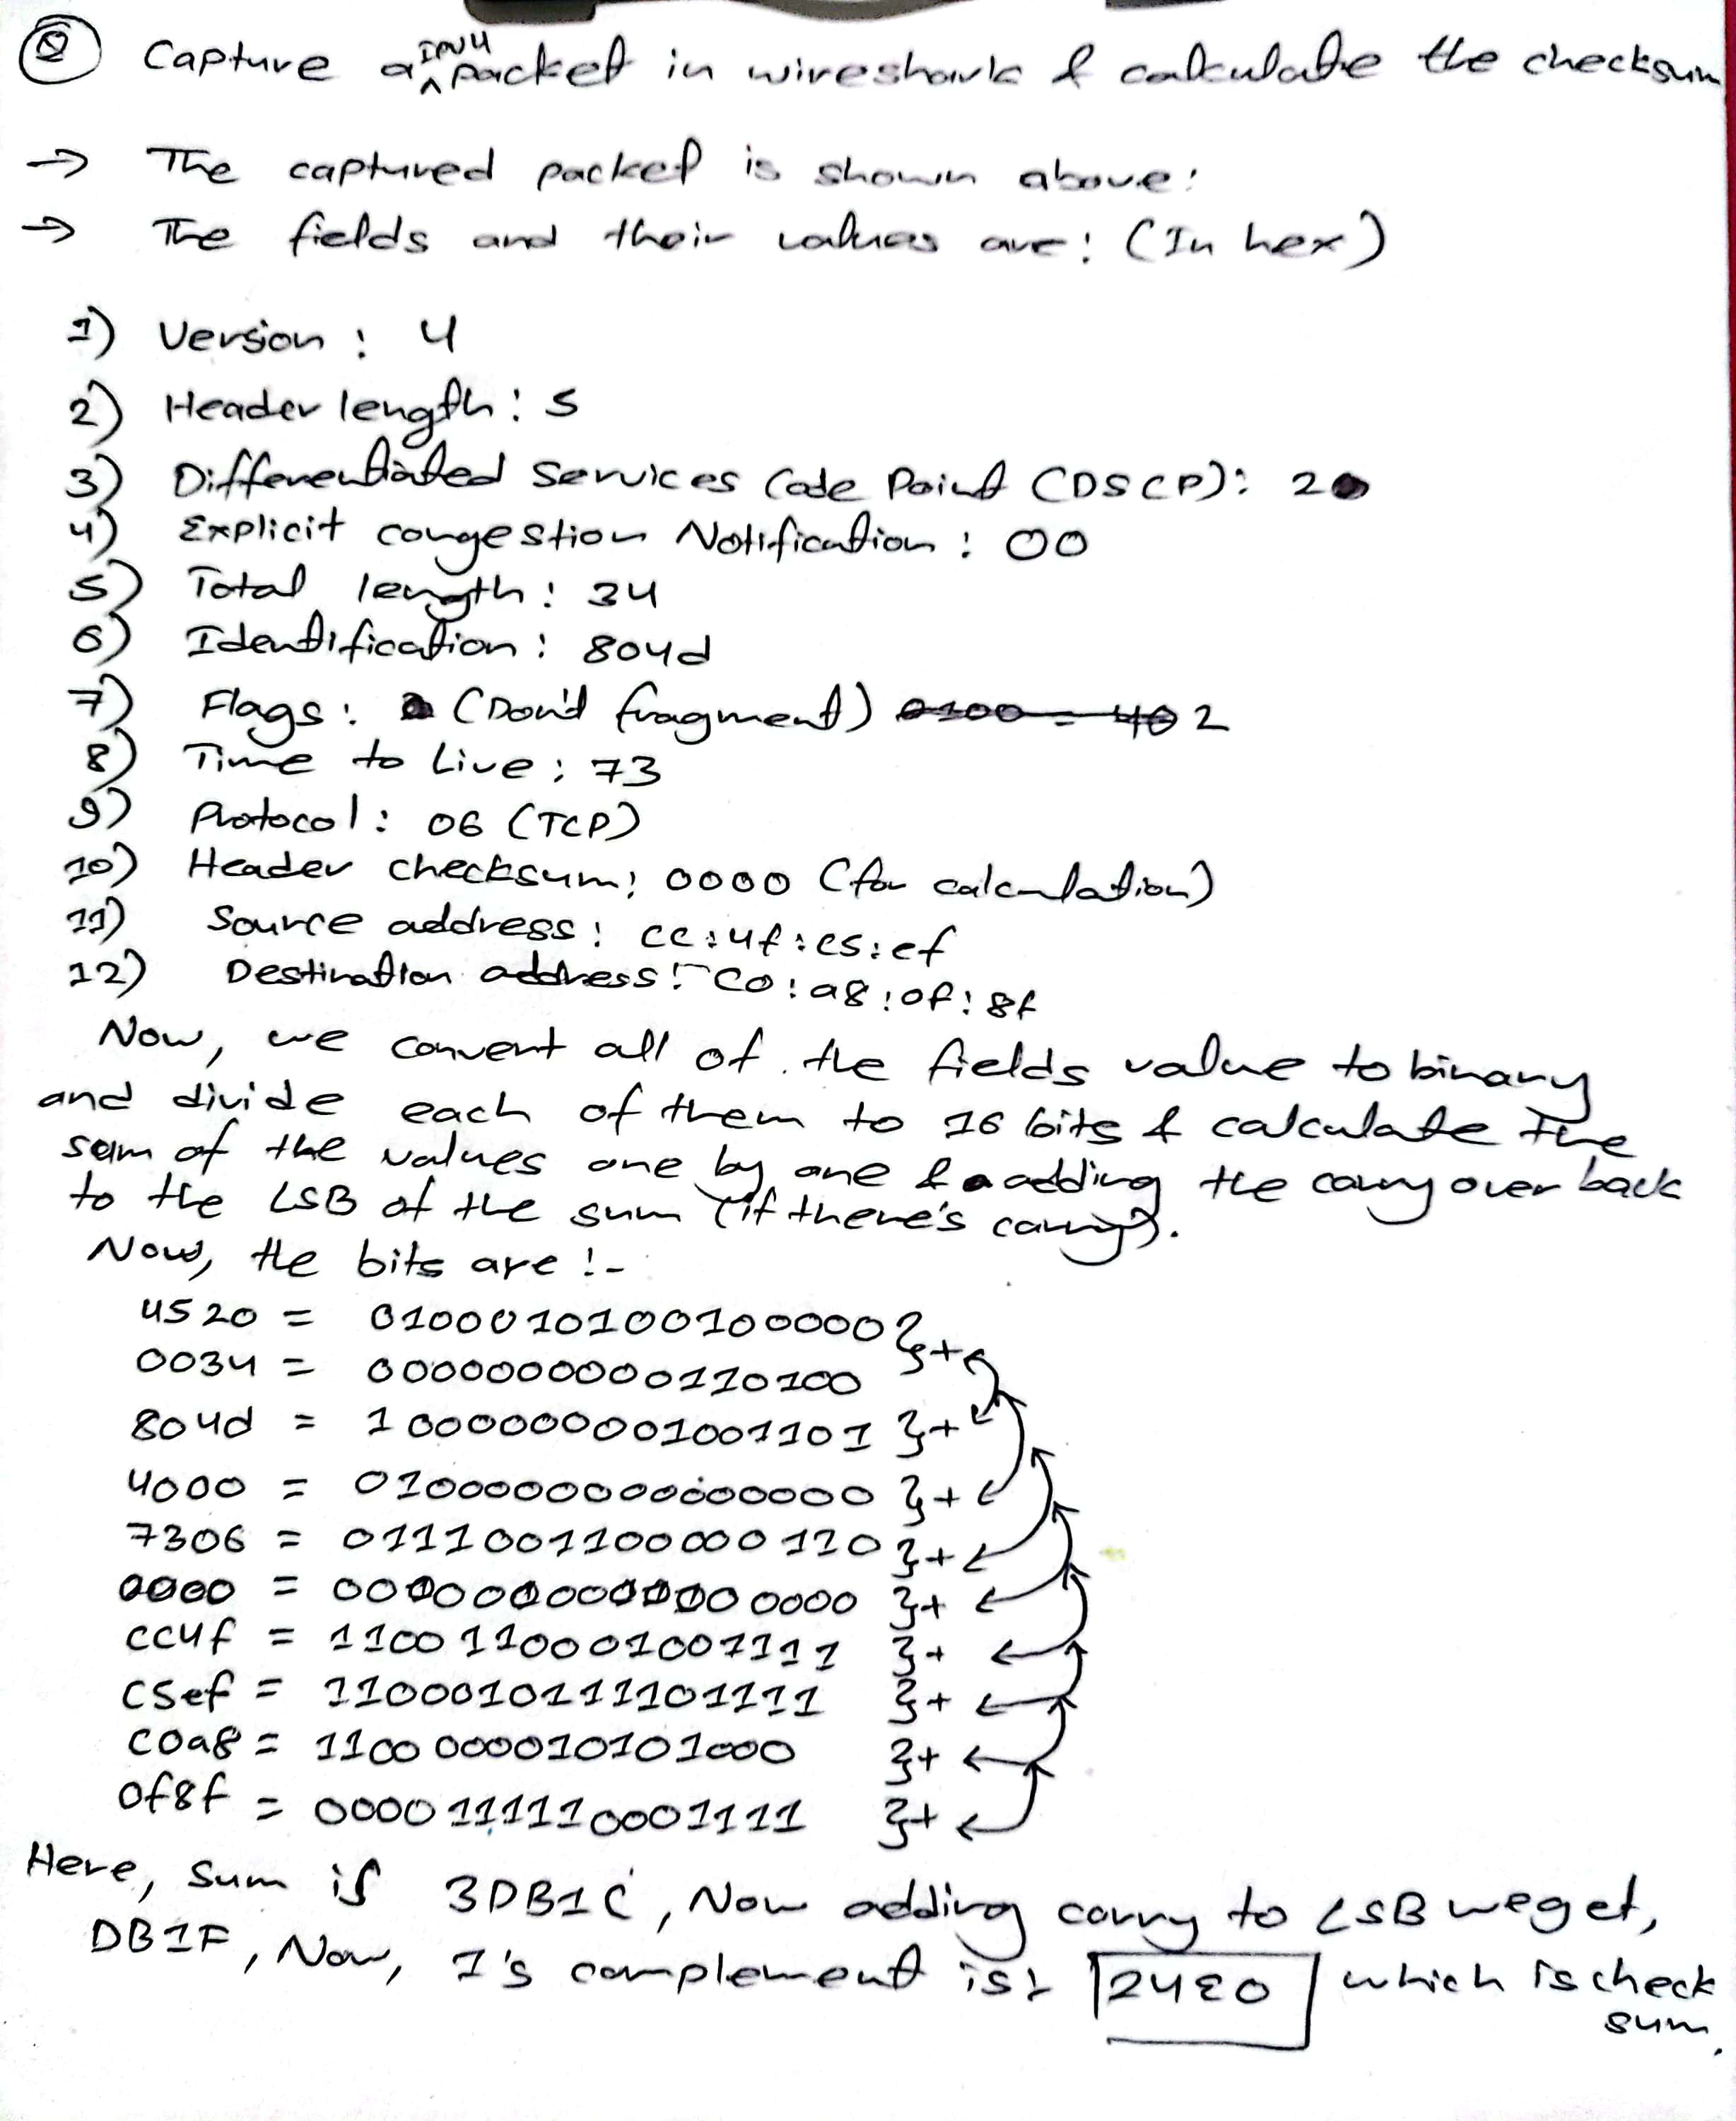 Q Capture a IPV4 packet in wireshark & calculate the checksum
→ The captured packet is shown above:
→ The fields and their values are: (In hex)
1) Version : 4
2) Header length : 5
3) Differentiated Services Code Point (DSCP): 2
4) Explicit congestion Notification : 00
5) Total length : 34
6) Identification : 804d
7) Flags : (Don't fragment) 0100 = 40 2
8) Time to Live : 73
9) Protocol : 06 (TCP)
10) Header checksum : 0000 (for calculation)
11) Source address : cc:4f:c5:ef
12) Destination address :- C0:a8:0f:8f
Now, we convert all of the fields value to binary
and divide each of them to 16 bits & calculate the
sum of the values one by one & adding the carry over back
to the LSB of the sum (if there's carry).
Now, the bits are :-
4520 = 0100010100100000 }+
0034 = 0000000000110100
804d = 1000000001001101 }+
4000 = 0100000000000000 }+
7306 = 0111001100000110 }+
0000 = 0000000000000000 }+
cc4f = 1100110001001111 }+
c5ef = 1100010111101111 }+
C0a8 = 1100000010101000 }+
0f8f = 0000111110001111 }+
Here, sum is 3DB1C, Now adding carry to LSB we get,
DB1F, Now, 1's complement is: 24E0 which is check
sum.